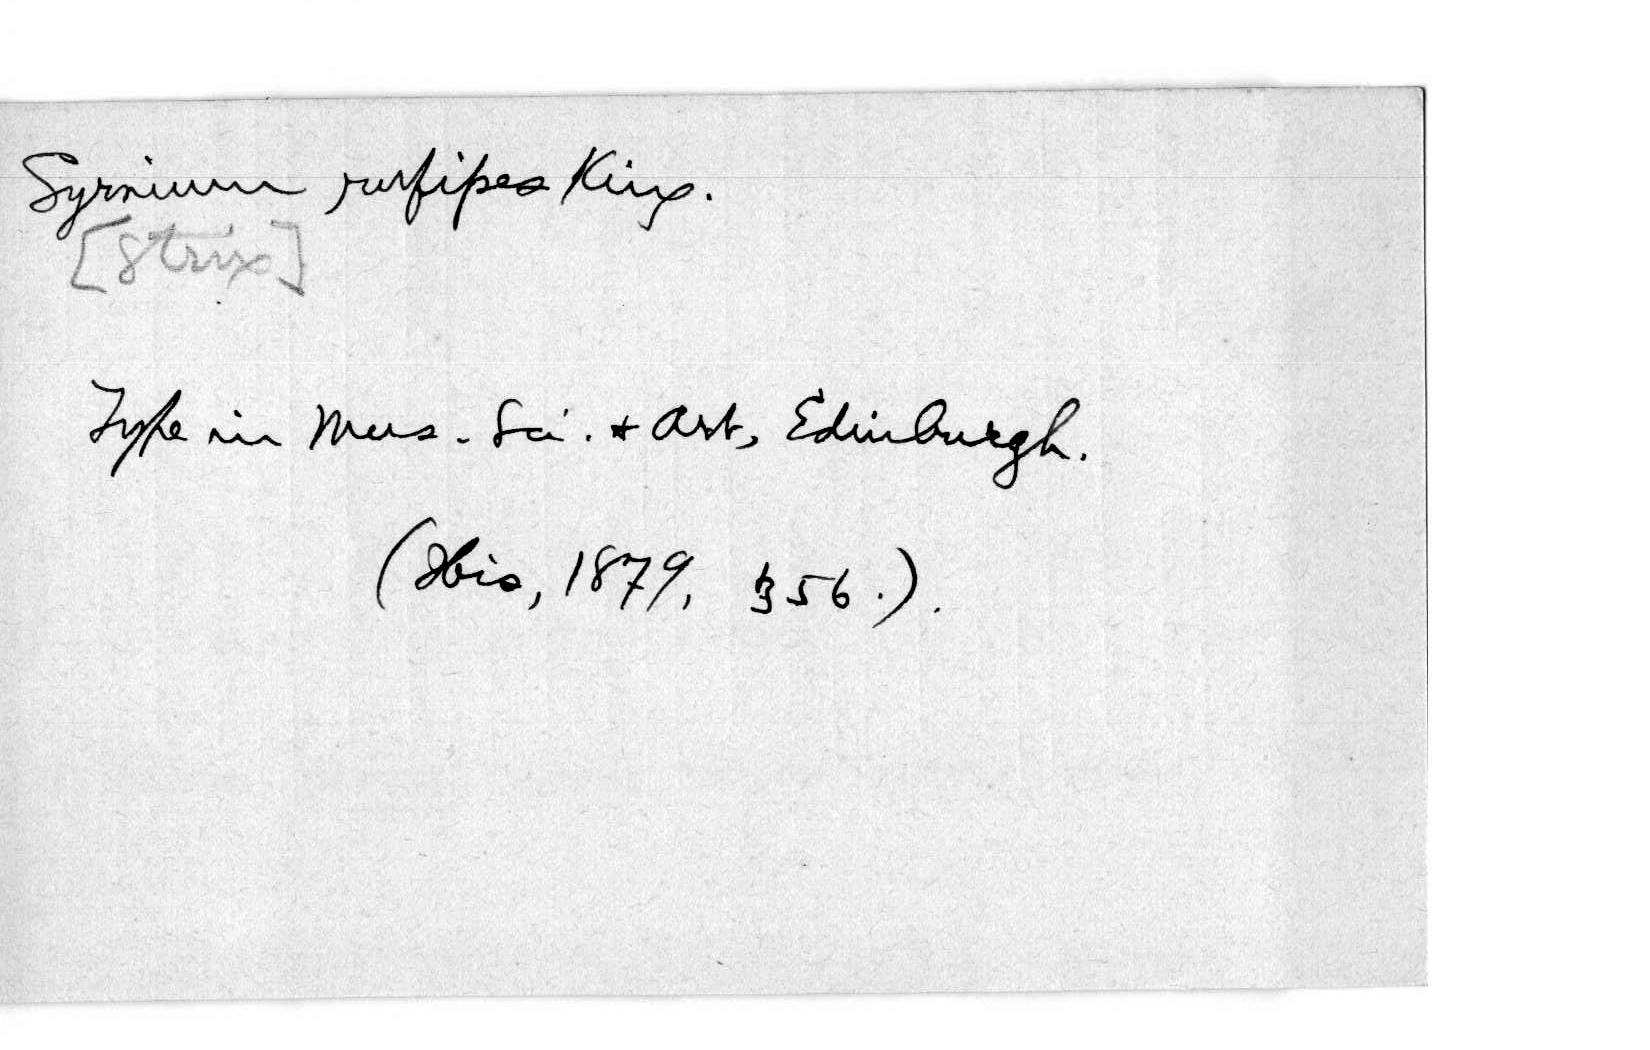 Syrnium rufipes King.
[Strix]
Type in Mus. Sci. & Art, Edinburgh.
(Ibis, 1879, 356.).